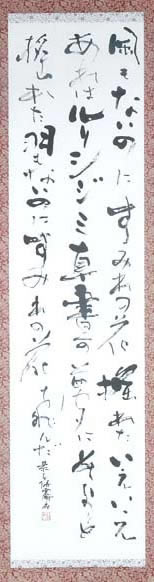 風もないのにすみれの花揺れたいえいえ
あれはルリシジミ真昼の夢にあそぶと
揺れた羽もないのにすみれの花とんだ